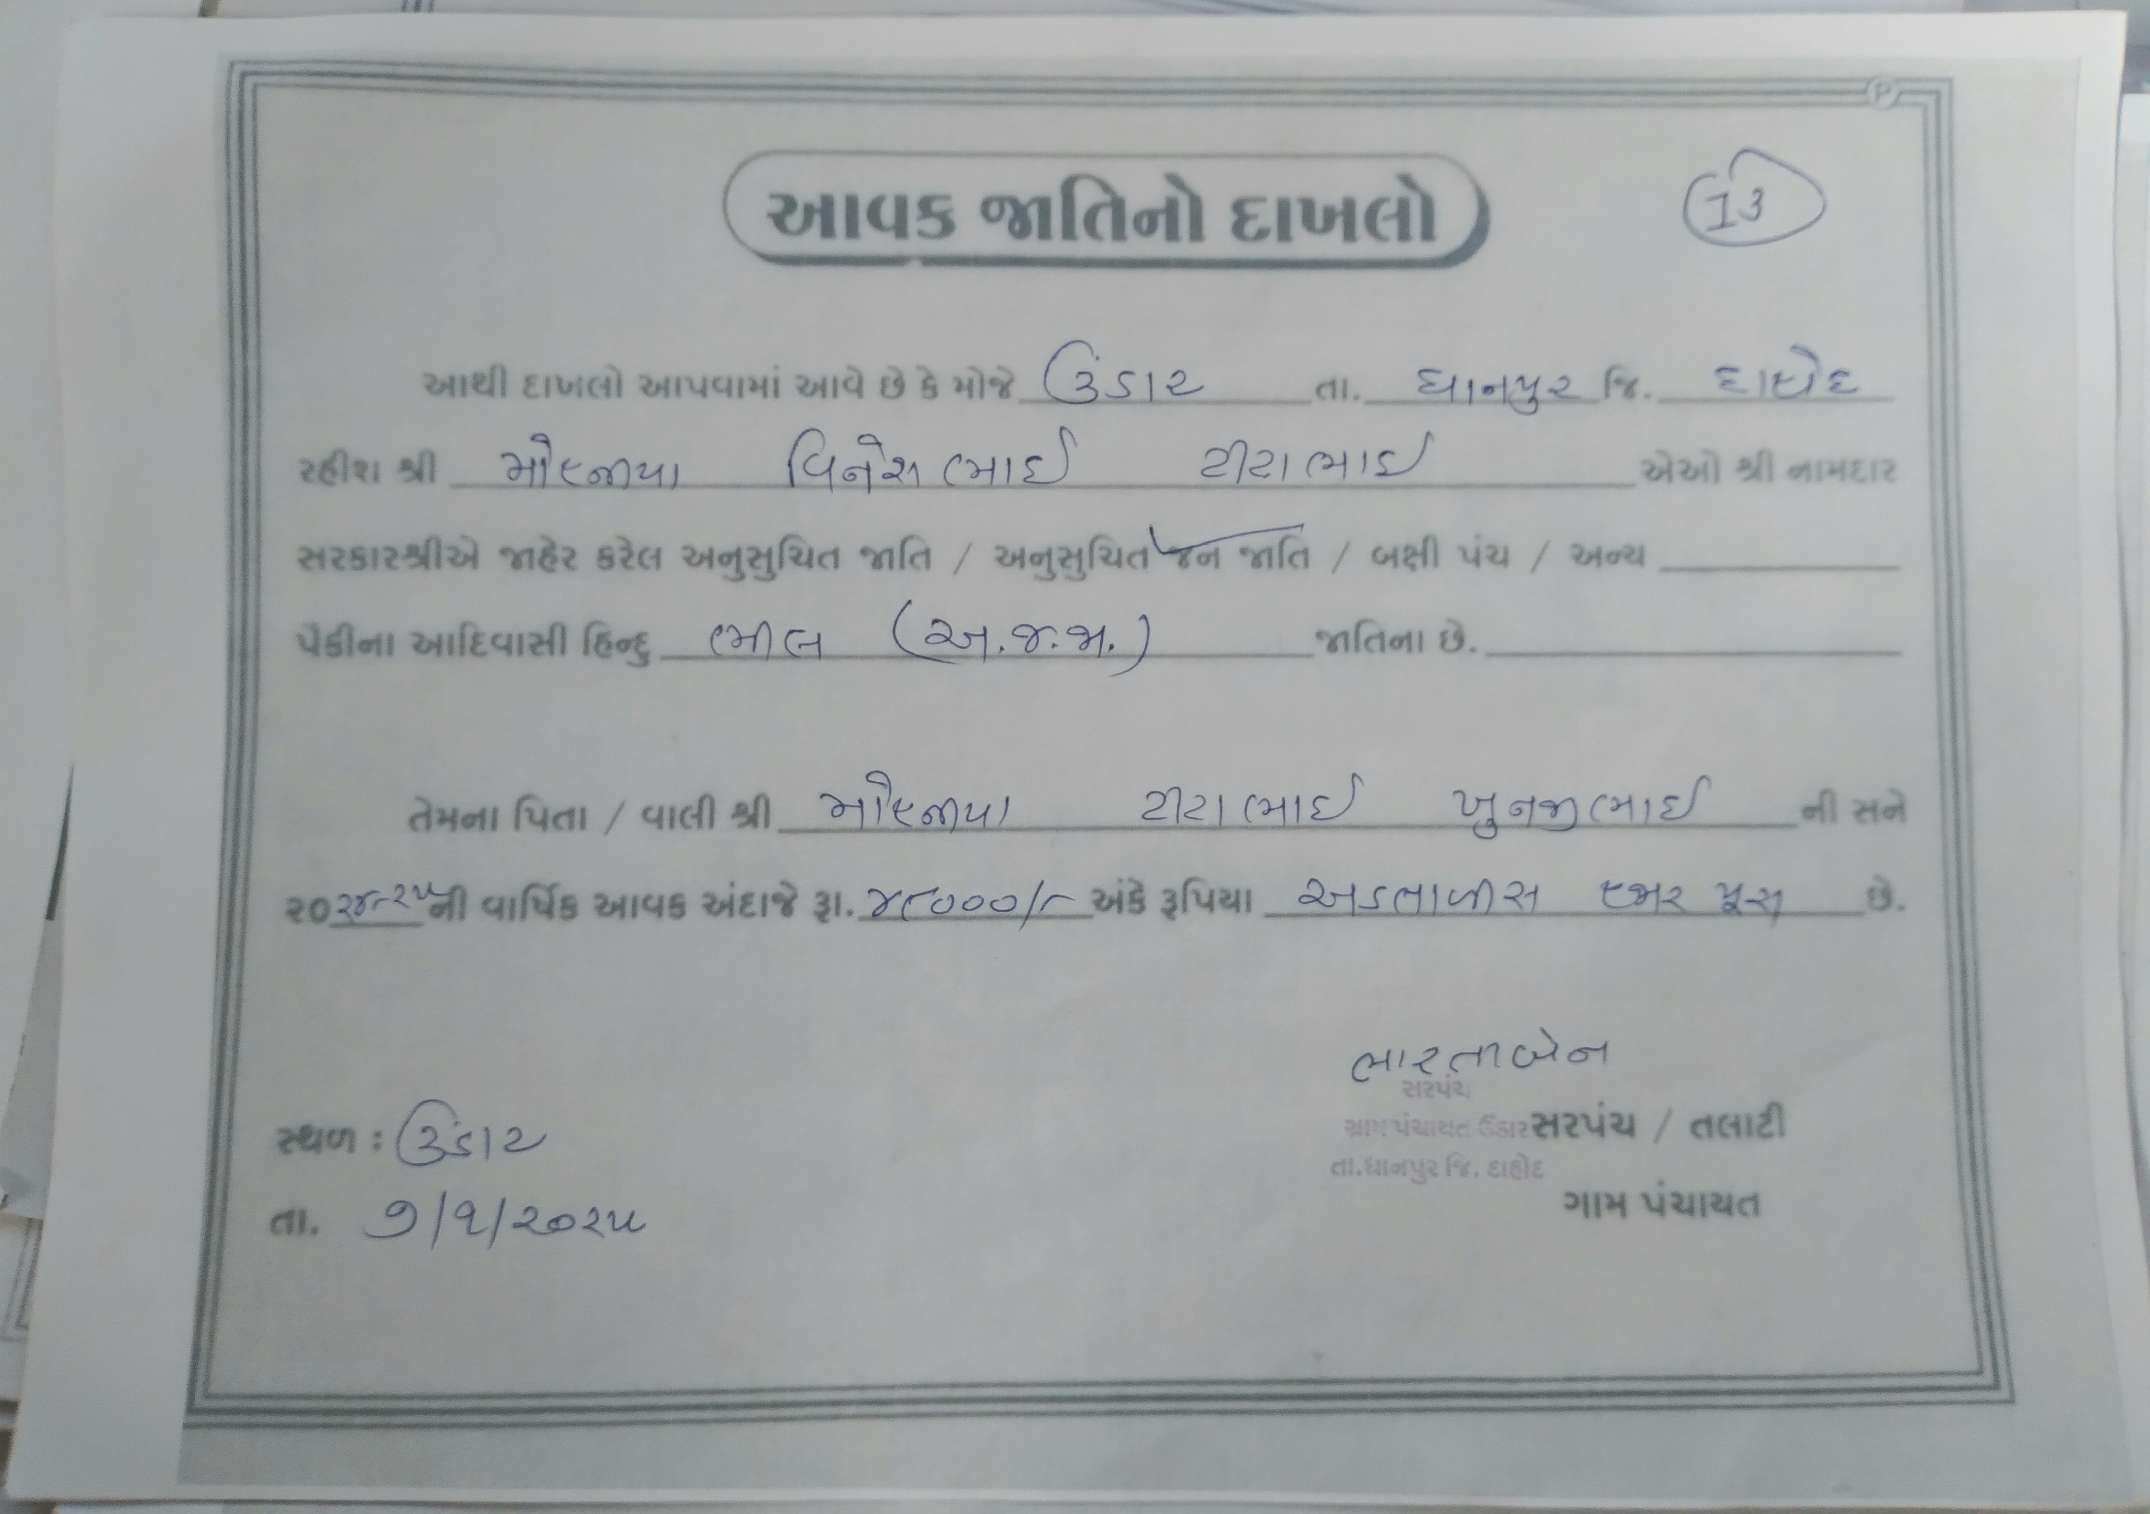 આવક જાતિનો દાખલો
13
આથી દાખલો આપવામાં આવે છે કે મોજે ઉંડાર તા. ધાનપુર જિ. દાહોદ
રહીશ શ્રી મોહનીયા વિનેશભાઈ ટીટાભાઈ એઓ શ્રી નામદાર
સરકારશ્રીએ જાહેર કરેલ અનુસુચિત જાતિ / અનુસુચિત જન જાતિ / બક્ષી પંચ / અન્ય
પૈકીના આદિવાસી હિન્દુ ભીલ (અ.જ.જા.) જાતિના છે.
તેમના પિતા / વાલી શ્રી મોહનીયા ટીટાભાઈ ખુનજીભાઈ ની સને
૨૦૨૪-૨૫ની વાર્ષિક આવક અંદાજે રૂા. ૪૮૦૦૦/- અંકે રૂપિયા અડતાળીસ હજાર પૂરા છે.
ભારતાબેન
સરપંચ
ગ્રામ પંચાયત ઉંડાર સરપંચ / તલાટી
સ્થળ : ઉંડાર
તા.ધાનપુર જિ. દાહોદ
ગામ પંચાયત
તા. ૭/૧/૨૦૨૫